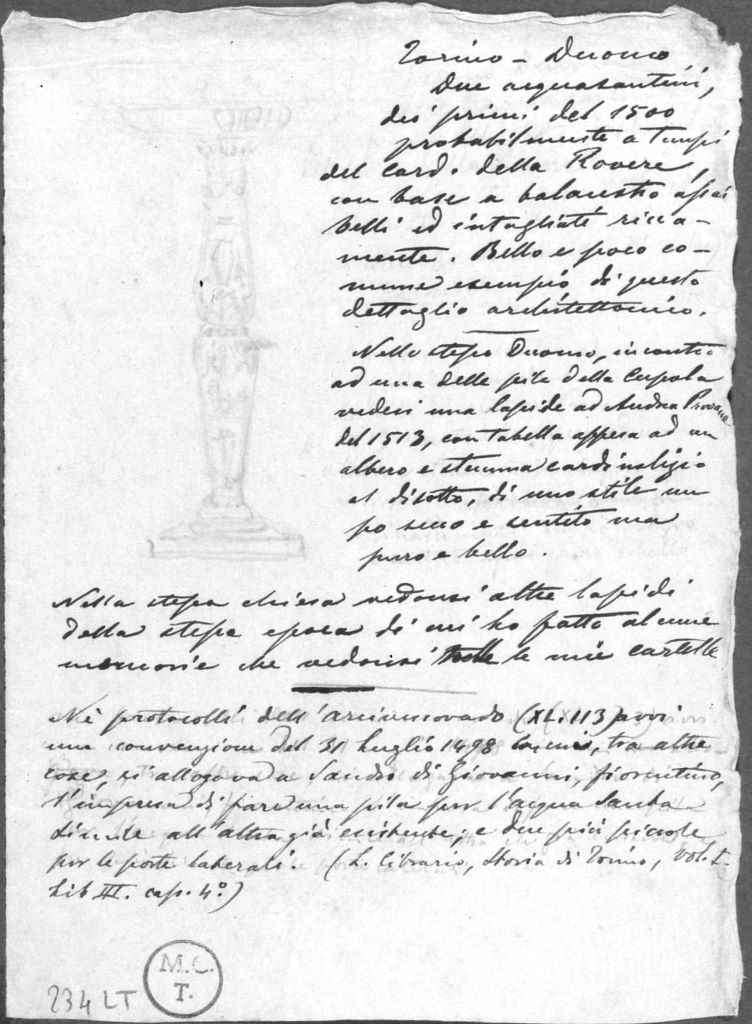 Torino - Duomo
Due acquasantini,
dei primi del 1500
probabilmente a tempi
del card. della Rovere,
con base a balaustro assai
belli ed intagliati ricca-
mente. Bello e poco co-
mune esempio di questo
dettaglio architettonico.
Nello stesso Duomo, incontro
ad una delle pile della Cupola
vedesi una lapide ad Andrea Provana
del 1513, con tabella appesa ad un
albero e stemma cardinalizio
al disotto, di uno stile un
po secco e sentito ma
puro e bello.
Nella stessa chiesa vedonsi altre lapidi
della stessa epoca di cui ho fatto alcune
memorie che vedonsi le mie cartelle
Nè protocolli dell'arcivescovado (XL.113) avvi
una convenzione del 31 luglio 1498 , tra altre
cose, si allogava a Sandro di Giovanni, fiorentino,
l'impresa di fare una pila per l'acqua Santa
simile all'altra già esistente; e due più piccole
per le porte laterali. (L. Cibrario, Storia di Torino, Vol. I.
Lib III. cap. 4°.)
M.C.
T.
234 LT